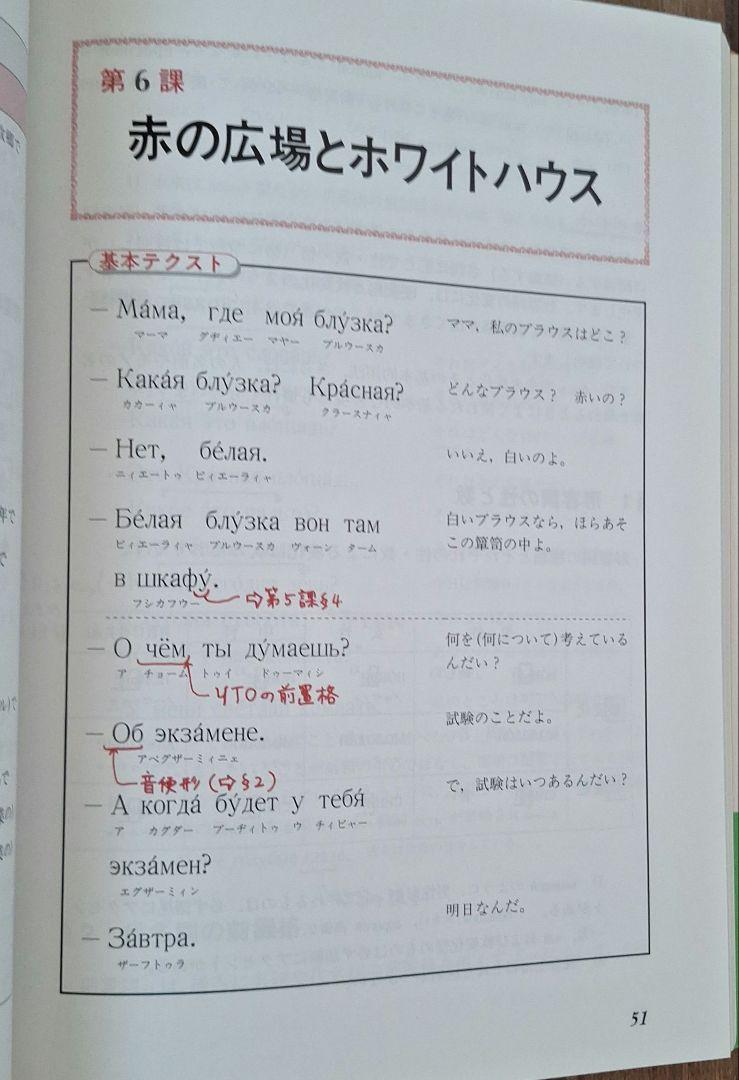 第6課
赤の広場とホワイトハウス
基本テクスト
— Ма́ма, где моя́ блу́зка? ママ，私のブラウスはどこ？
マーマ グヂィエー マヤー ブルウースカ
— Кака́я блу́зка? Кра́сная? どんなブラウス？ 赤いの？
カカーィヤ ブルウースカ クラースナィヤ
— Нет, бе́лая. いいえ，白いのよ。
ニィエートゥ ビィエーラィヤ
— Бе́лая блу́зка вон там 白いブラウスなら，ほらあそ
ビィエーラィヤ ブルウースカ ヴォーン ターム こ の箪笥の中よ。
в шкафу́.
フシカフウー ⇨第5課§4
— О чём ты ду́маешь? 何を(何について)考えている
ア チョーム トゥイ ドゥーマィシ んだい？
ЧТОの前置格
— Об экза́мене. 試験のことだよ。
アベグザーミィニェ
音便形(⇨§2)
— А когда́ бу́дет у тебя́ で，試験はいつあるんだい？
ア カグダー ブーヂィトゥ ウ チィビャー
экза́мен?
エグザーミィン
— За́втра. 明日なんだ。
ザーフトゥラ
51